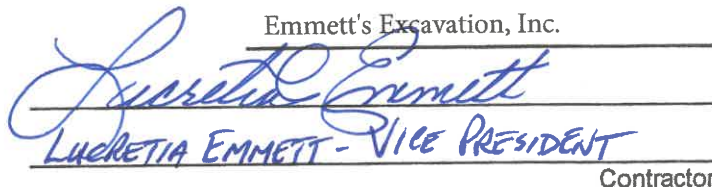 Emmett's Excavation, Inc.
Lucretia Emmett
LUCRETIA EMMETT - VICE PRESIDENT
Contractor